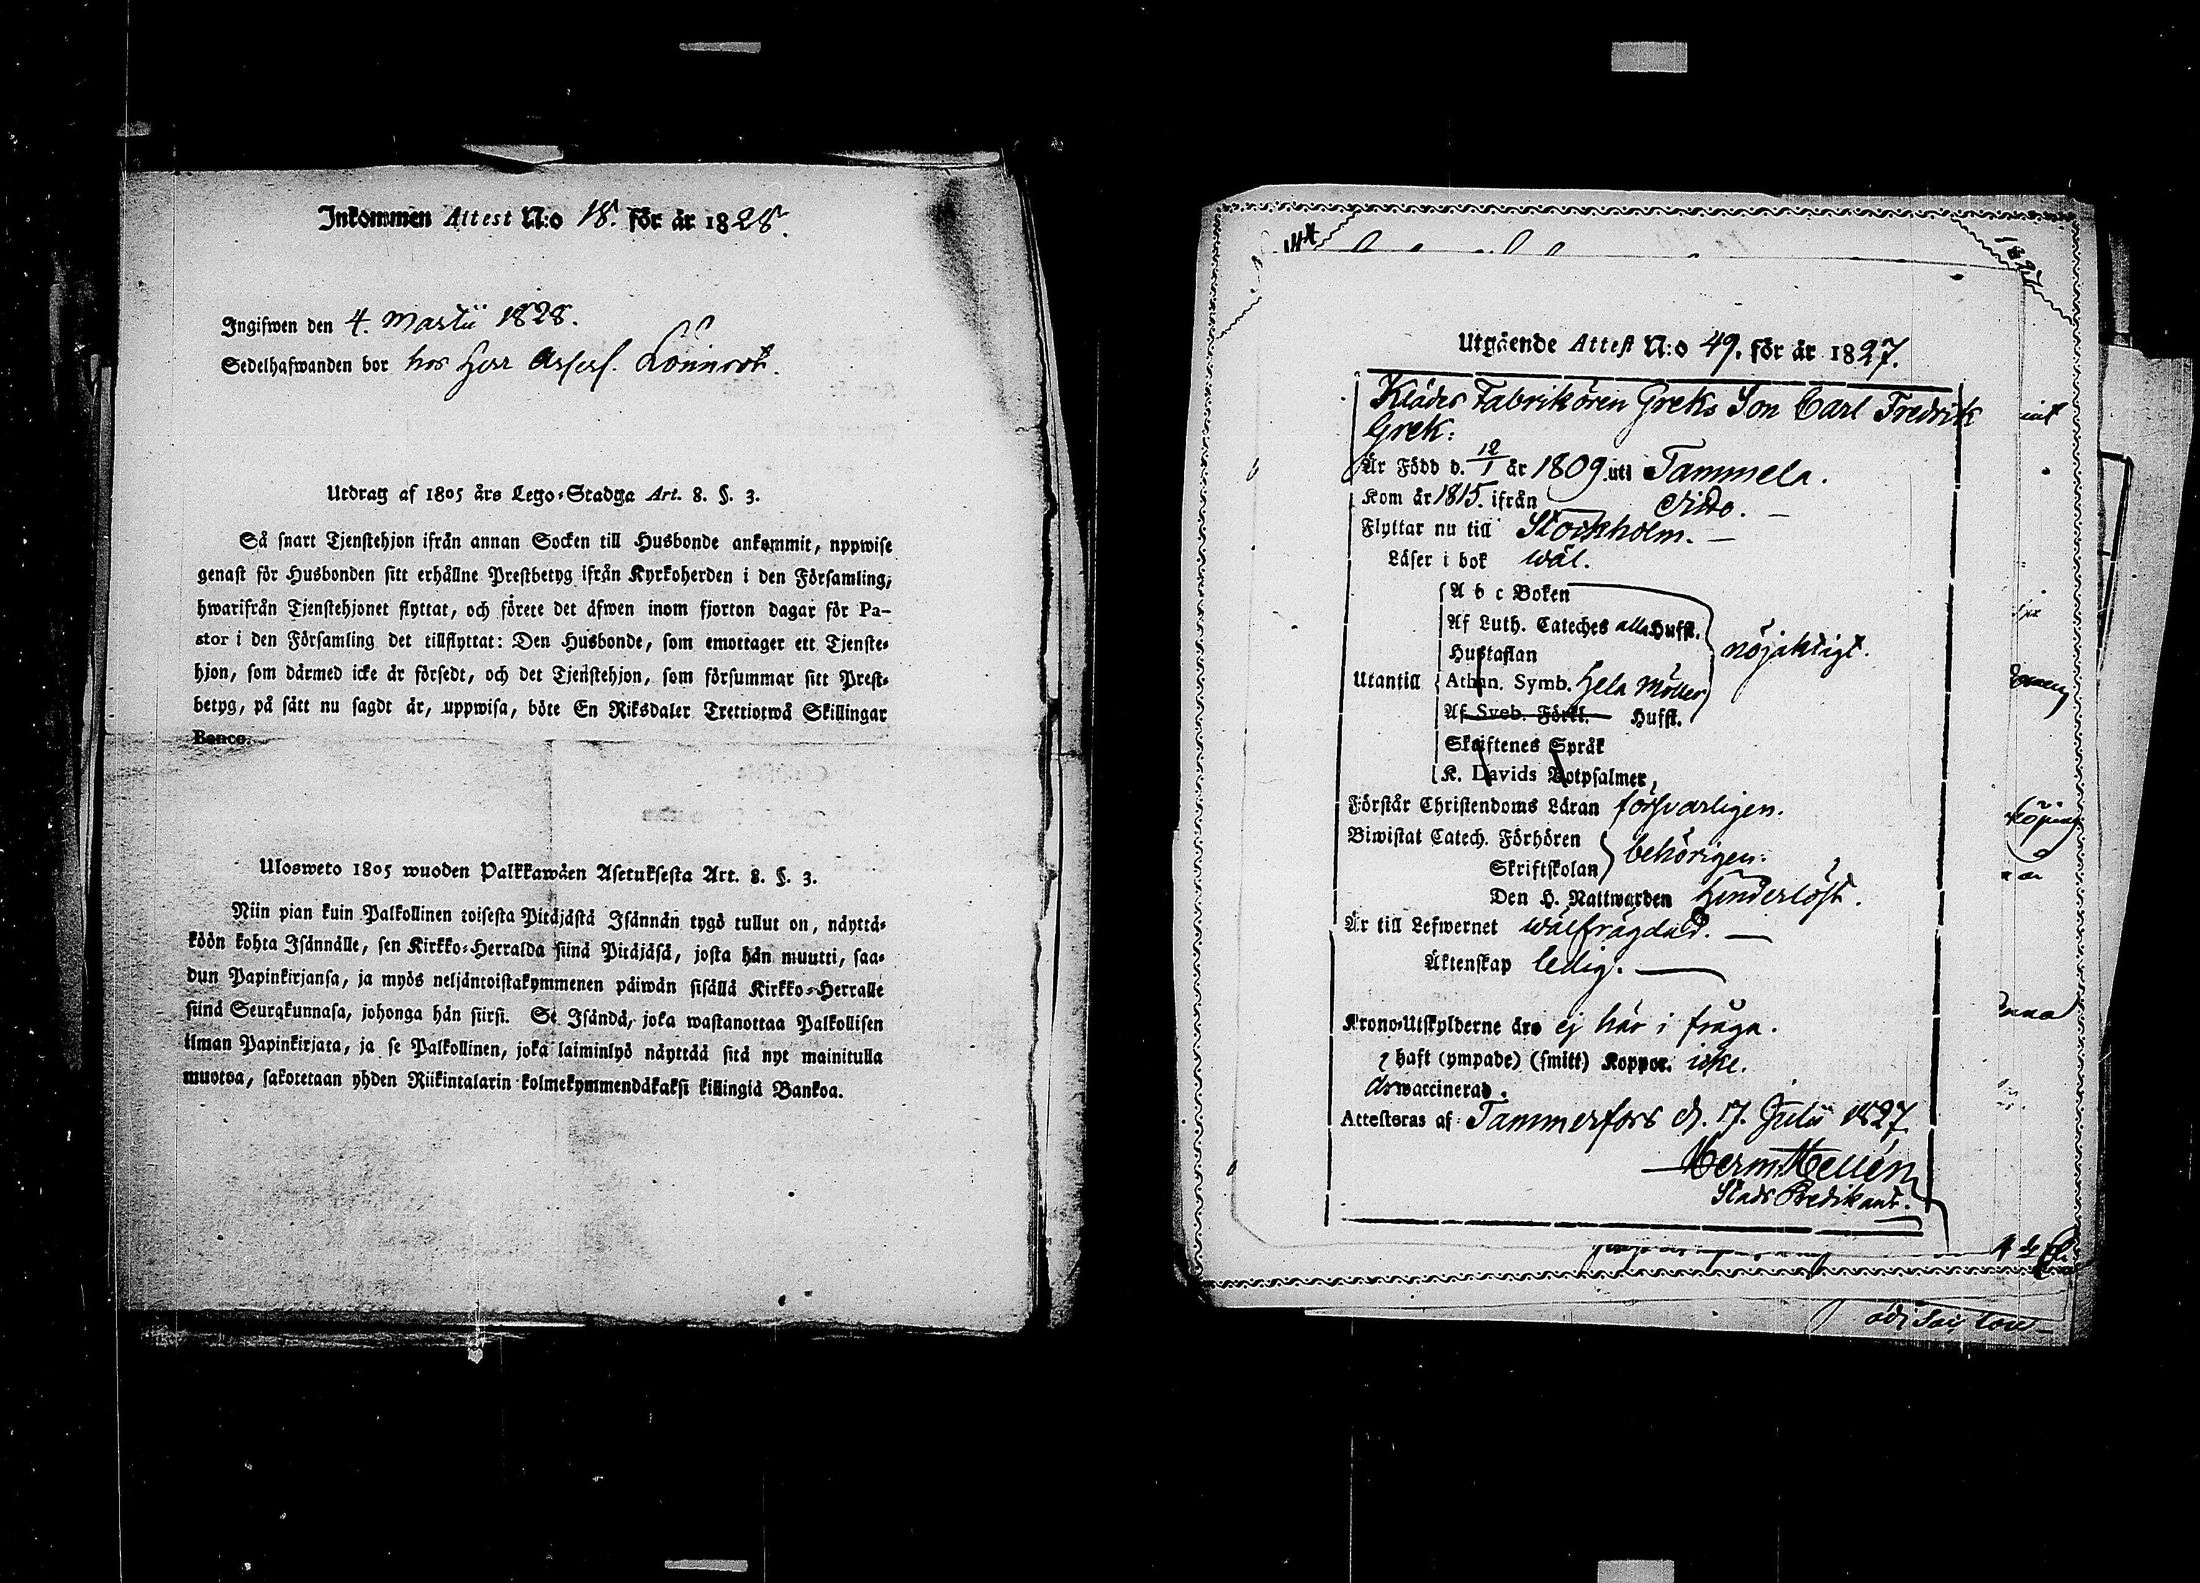 Inkommen Attest N:o 18. för år 1828.
Ingifwen den 4. Martii 1828.
Sedelhafwanden bor hos Herr Assess. Lönnrot.
Utdrag af 1805 års Lego-Stadga Art. 8. §. 3.
Så snart Tjenstehjon ifrån annan Socken till Husbonde ankommit, nppwise
genast för Husbonden sitt erhållne Prestbetyg ifrån Kyrkoherden i den Församling,
hwarifrån Tjenstehjonet flyttat, och förete det äfwen inom fjorton dagar för Pa-
stor i den Församling det tillflyttat: Den Husbonde, som emottager ett Tjenste-
hjon, som därmed icke är försedt, och det Tjenstehjon, som försummar sitt Prest-
betyg, på sätt nu sagdt är, uppwisa, böte En Riksdaler Trettiotwå Skillingar
Banco.
Ulosweto 1805 wuoden Palkkawäen Asetuksesta Art. 8. §. 3.
Niin pian kuin Palkollinen toisesta Pitäjästä Isännän tygö tullut on, näyttä-
köön kohta Isännälle, sen Kirkko-Herralda siinä Pitäjäsä, josta hän muutti, saa-
dun Papinkirjansa, ja myös neljäntoistakymmenen päiwän sisällä Kirkko-Herralle
siinä Seurakunnasa, johonga hän siirsi. Se Isändä, joka wastanottaa Palkollisen
ilman Papinkirjata, ja se Palkollinen, joka laiminlyö näyttää sitä nyt mainitulla
muotoa, sakotetaan yhden Riikintalarin kolmekymmendäkaksi killingiä Bankoa.
1827
Utgående Attest N:o 49. för år 1827.
Klädes Fabrikören Greks Son Carl Fredrik
Grek:
Är Född d. 12/1 år 1809. uti Tammela.
Kom år 1815. ifrån Dito.
Flyttar nu till Stockholm.
Läser i bok wäl.
A b c Boken
Af Luth. Cateches alla Hufst.
Hustaflan
nöjaktigt.
Utantill Athan. Symb. Hela Möller
Af Sveb. Förkl. Hufst.
Skriftenes Språk
K. Davids Botpsalmer,
Förstår Christendoms Läran försvarligen.
Biwistat Catech. Förhören
Skriftskolan behörigen.
Den H. Nattwarden hinderlöst.
Är till Lefwernet wälfrägdad.
Äktenskap ledig.
Krono-Utskylderne äro ej här i fråga.
haft (ympade) (smitt) Koppor. icke.
är waccinerad.
Attesteras af Tammerfors d. 17. Julii 1827
Herm. Hellén
Stads Predikant.